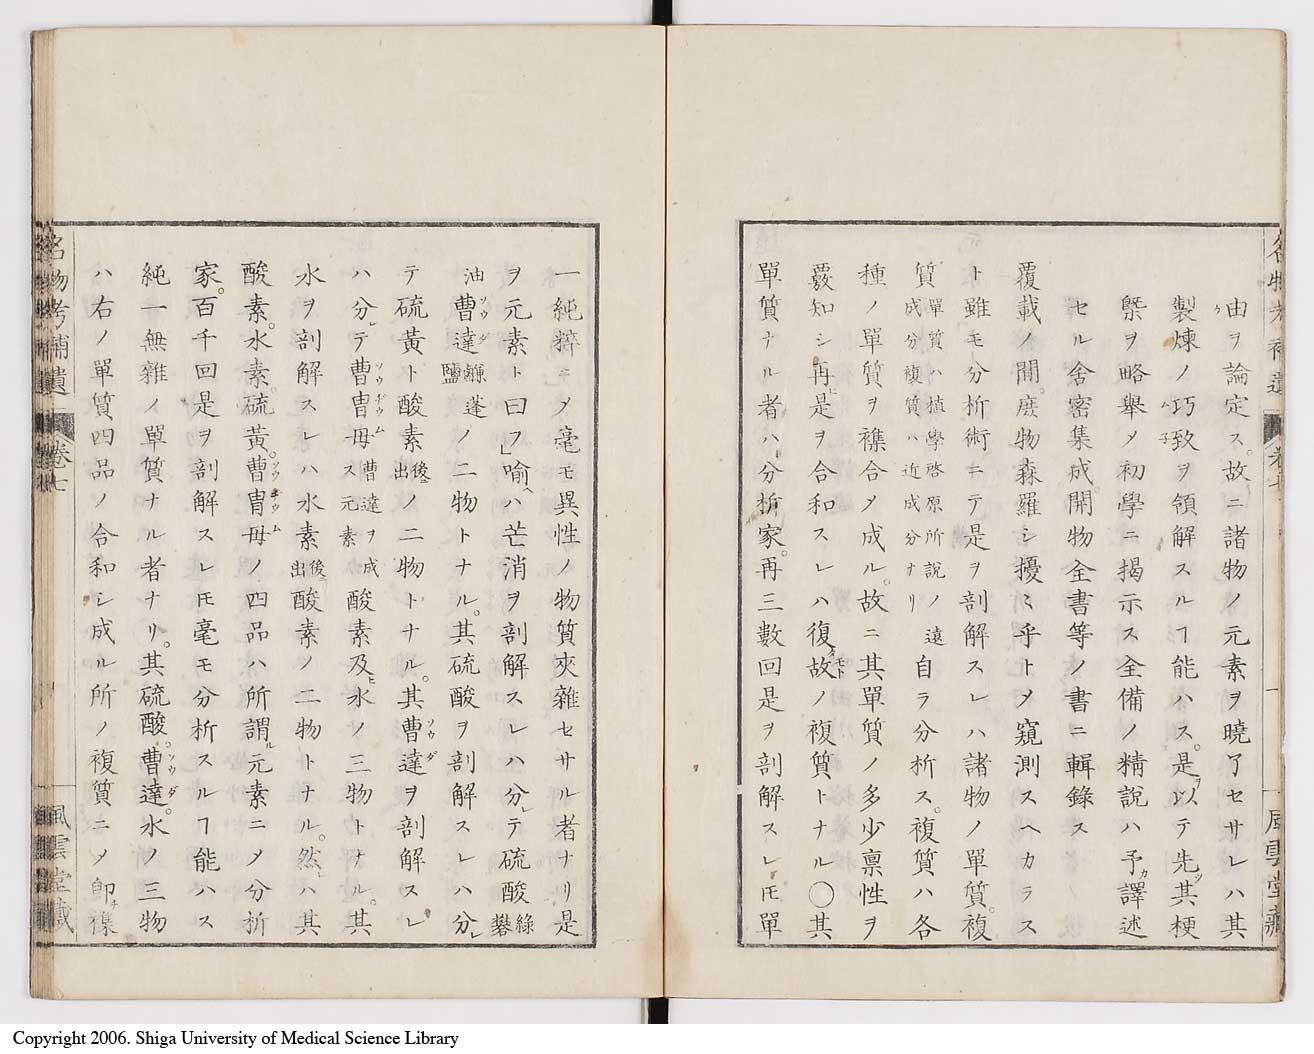 名物考補遺 卷七 一 風雲堂藏
由ヲ論定ス。故ニ諸物ノ元素ヲ曉了セサレハ其
製煉ノ巧致ヲ領解スルヿ能ハス。是ヲ以テ先ツ其梗
槩ヲ略舉メ初學ニ揭示ス全備ノ精說ハ予カ譯述
セル舍密集成。開物全書等ノ書ニ輯錄ス
覆載ノ間。庶物森羅シ擾ミ乎トメ窺測スヘカラス
ト雖モ分析術ニテ是ヲ剖解スレハ諸物ノ單質。複
質單質ハ植學啓原所說ノ遠成分複質ハ近成分ナリ自ラ分析ス。複質ハ各
種ノ單質ヲ襍合メ成ル。故ニ其單質ノ多少禀性ヲ
覈知シ再ヒ是ヲ合和スレハ復タ故ノ複質トナル〇其
單質ナル者ハ分析家。再三數回是ヲ剖解スレ𪜈單
一純粹ニメ毫モ異性ノ物質夾雜セサル者ナリ是
ヲ元素ト曰フ」喻ヘハ芒消ヲ剖解スレハ分レテ硫酸綠礬
油曹達ソウダ鹻蓬鹽ノ二物トナル。其硫酸ヲ剖解スレハ分レ
テ硫黃ト酸素後ニ出ノ二物トナル。其曹達ソウダヲ剖解スレ
ハ分レテ曹冑母ソウヂウム曹達ヲ成ス元素酸素及ヒ水ノ三物トナル。其
水ヲ剖解スレハ水素後ニ出酸素ノ二物トナル。然ハ其
酸素。水素。硫黃。曹冑母ソウヂウムノ四品ハ所謂ル元素ニメ分析
家。百千回是ヲ剖解スレ𪜈毫モ分析スルヿ能ハス
純一無雜ノ單質ナル者ナリ。其硫酸。曹達ソウダ。水ノ三物
ハ右ノ單質四品ノ合和シ成ル所ノ複質ニメ卽チ襍
名物考補遺 卷七 風雲堂藏
Copyright 2006. Shiga University of Medical Science Library